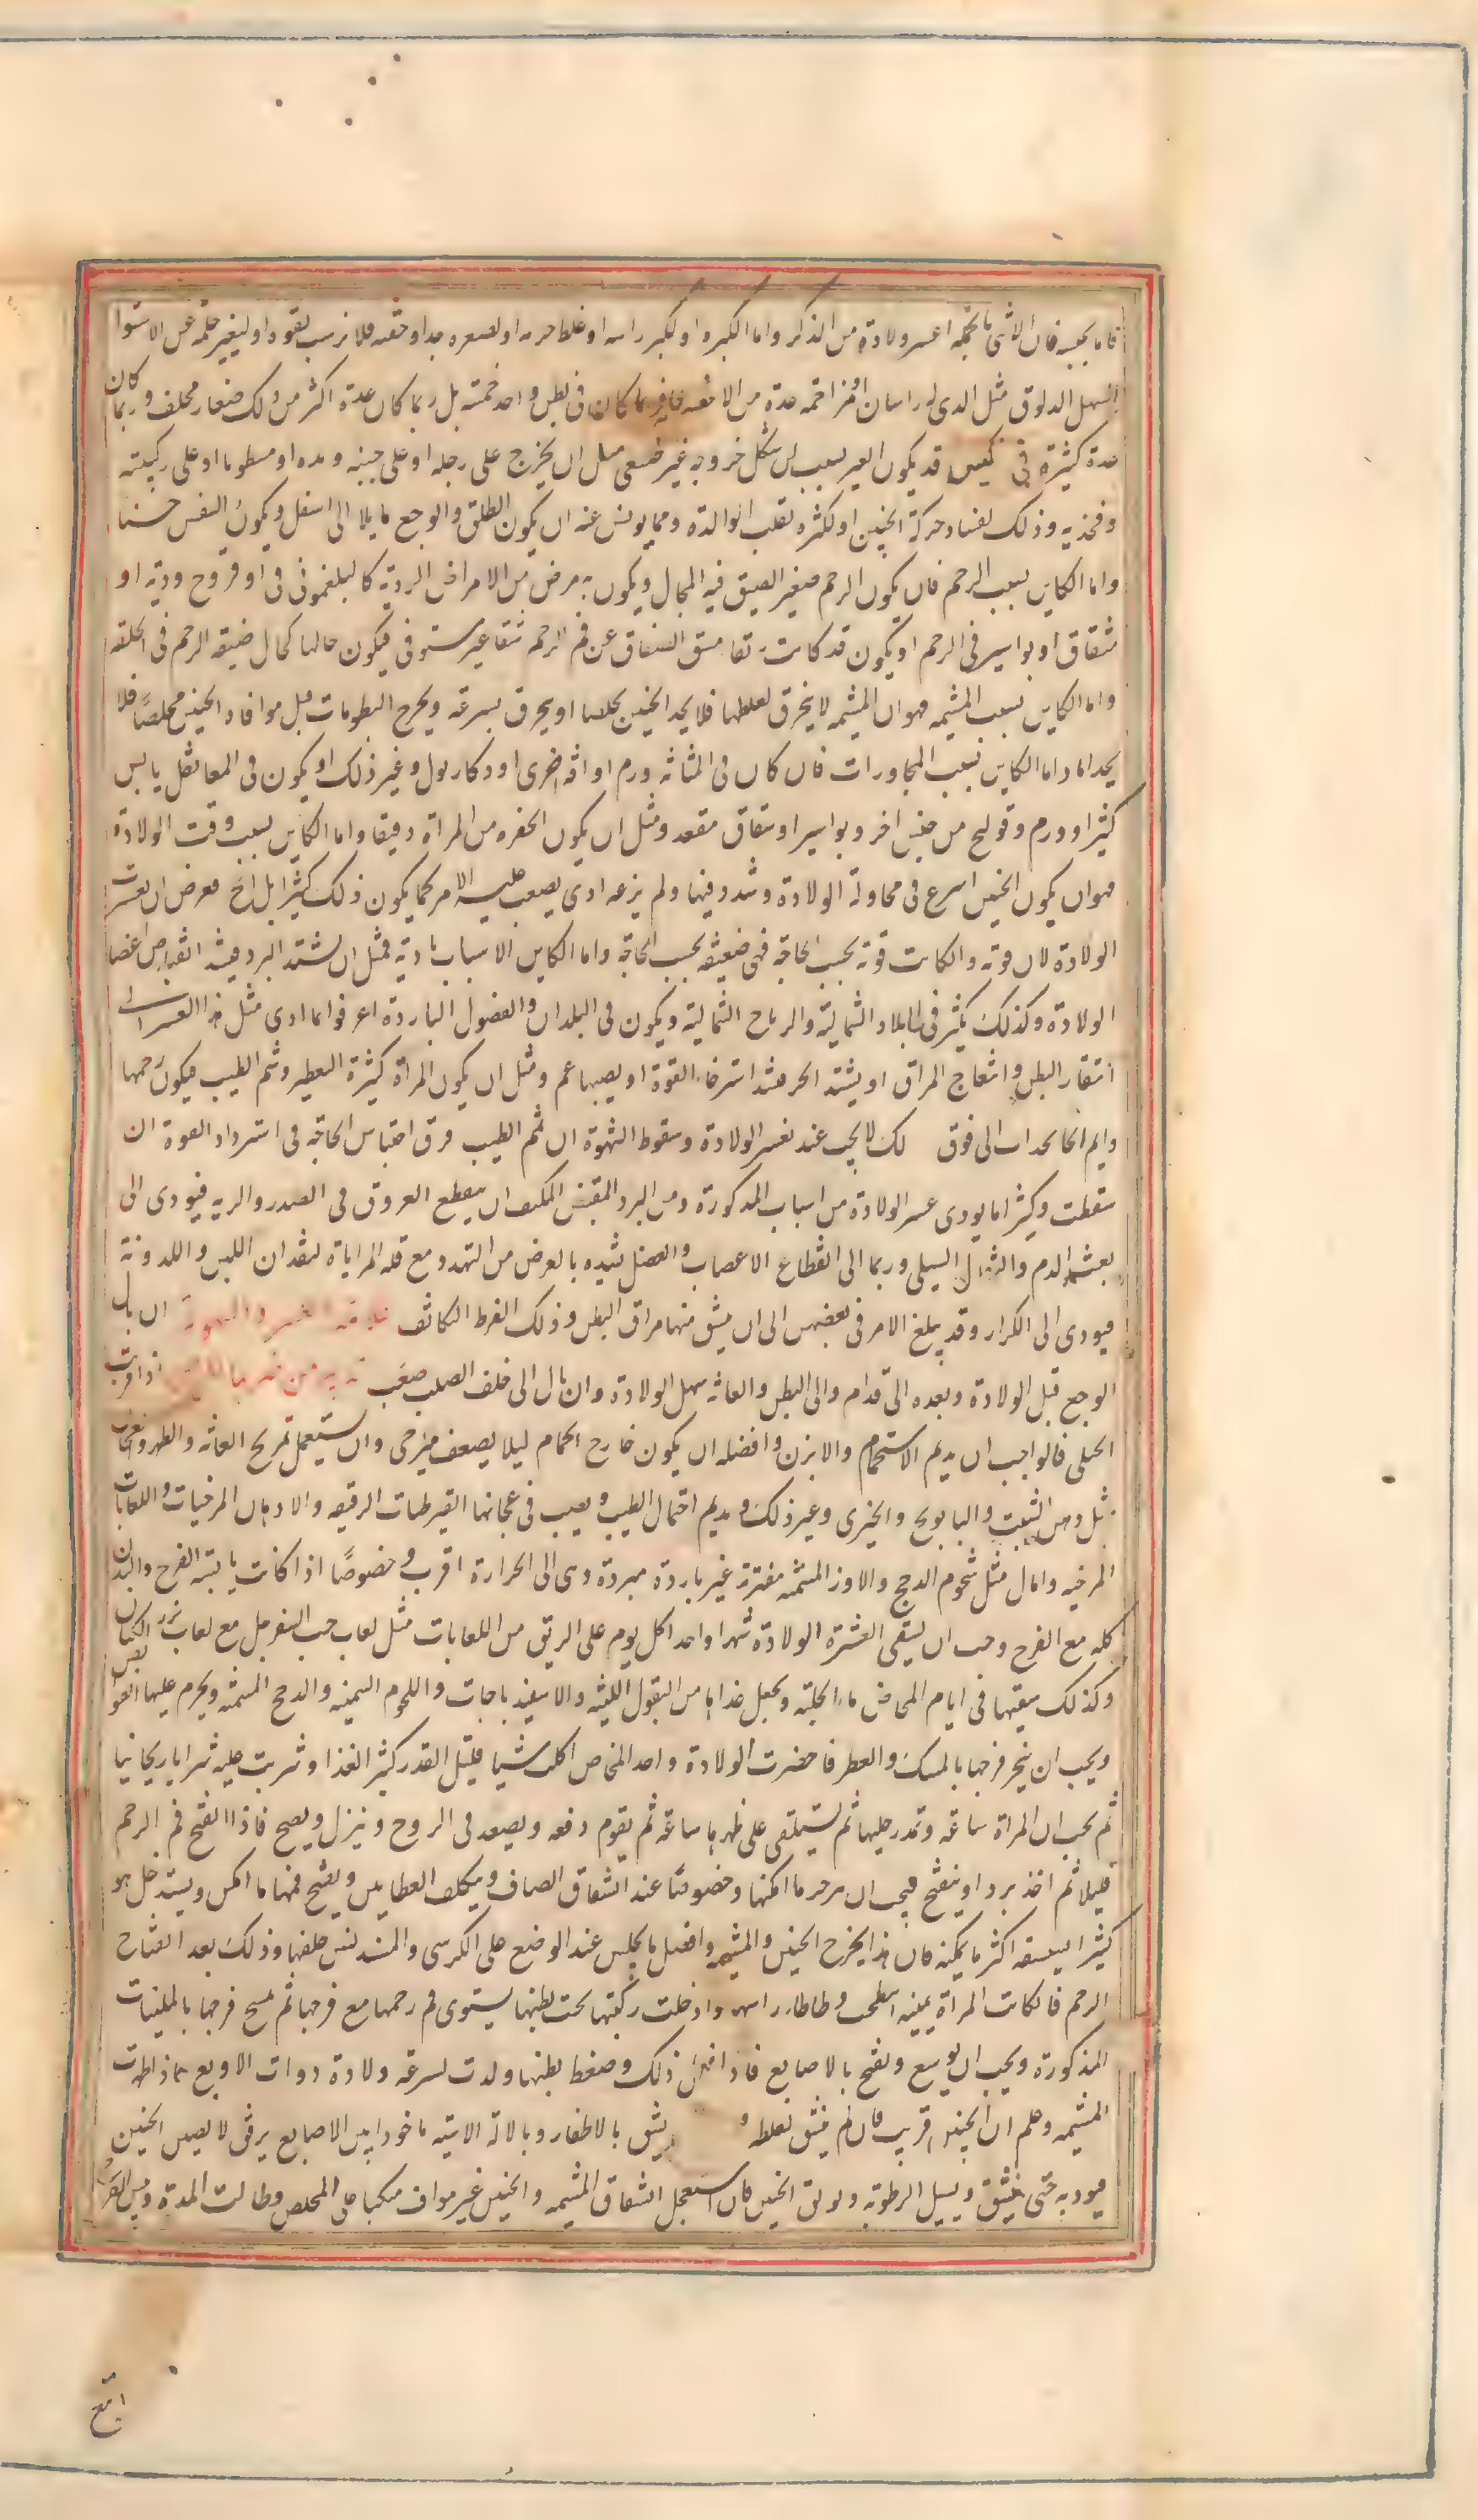 فاما بجنسه فان الانثى بالجمله اعسر ولادة من الذكر واما الكبره او لكبر راسه او غلظ جرمه او لصغره جدا وخفته فلا يرسب بقوة او لتغير خلقه عن الاستوا
السهل الدلوق مثل الذى له راسان او مزاحمه عدة من الاجنه فانه ربما كان فى بطن واحد خمسة بل ربما كان عدة اكثر من ذلك صغار مختلف وربما كان
عدة كثيرة فى كيس قد يكون العسر بسبب ان شكل خروجه غير طبيعى مثل ان يخرج على رجله او على جنبه ويده او مسطوحا او على ركبته
وفخذيه وذلك لفساد حركة الجنين او لكثرة تقلب الوالدة ومما يونس عنه ان يكون الطلق والوجع مايلا الى اسفل ويكون النفس حسنا
واما الكاين بسبب الرحم فان يكون الرحم صغير الضيق فيه المجال ويكون به مرض من الامراض الردية كالبلغمونى فى او قروح ردية او
شقاق او بواسير فى الرحم او يكون قد كانت رتقا فشق الصفاق عن فم الرحم شقا غير مستوفى فيكون حالها كحال ضيقة الرحم فى الخلقه
واما الكاين بسبب المشيمه فهو ان المشيمه لا يخرق لغلظها فلا يجد الجنين مخلصا او يخرق بسرعة ويخرج الرطوبات قبل موافاة الجنين مخلصا فلا
يجد اما واما الكاين بسبب المجاورات فان كان فى المثانه ورم او افة اخرى او ذكار بول وغير ذلك او يكون فى المعا ثفل يابس
كثير او ورم وقولنج من جنس اخر وبواسير او شقاق مقعد ومثل ان يكون الخصره من المراة دقيقا واما الكاين بسبب وقت الولادة
فهو ان يكون الجنين اسرع فى محاولة الولادة وشدد فيها ولم يزعه ادى يصعب عليه الامر كما يكون ذلك كثيرا بل الح فعرض ان عسرت
الولادة لان قوته والكانت قوته بحسب الحاجة فهى ضعيفه بحسب الحاجة واما الكاين الاسباب بادية فمثل ان لشتد البرد فيشد انقباض اعضا
الولادة وكذلك يكثر فى البلاد الشمالية والرياح الشمالية ويكون فى البلدان والفصول الباردة اعرفوا ما ادى مثل هذا العسر الى
انتقار البطن وانثعاج المراق او يشتد الحر فيشد استرخاء القوة او يصيبها غم ومثل ان يكون المراة كثيرة التعطير وشم الطيب فيكون رحمها
دايم انجا بحداب الى فوق لك لا يجب عند تعسر الولادة وسقوط الشهوة ان شم الطيب فرق احتباس الحاجة فى استرداد القوة ان
سقطت وكثيرا ما يودى عسر الولادة من اسباب المذكورة ومن البرد المقبض المكثف ان ينقطع العروق فى الصدر والريه فيودى الى
بعثه الدم والشرال السيلى وربما الى انقطاع الاعصاب والعضل شده بالعرض من التهدد مع قله المراياة لفقدان اللين واللدونة
فيودى الى الكزاز وقد يبلغ الامر فى بعضهن الى ان ينشق منها مراق البطن وذلك الفرط التكاثف علامة العسر والسهولة ان مال
الوجع قبل الولادة وبعده الى قدام والى البطن والعانه سهل الولادة وان مال الى خلف الصلب صعب اذا قربت
الحبلى فالواجب ان يديم الاستحمام والابزن وافضله ان يكون خارج الحمام ليلا يضعف فيرخى وان يستعمل تمريخ العانه والظهر والعجان
بمثل دهن الشبت والبابونج والخيرى وغير ذلك ويديم احتمال الطيب ويصب فى عجانها القيرطيات الرقيقه والادهان المرخيات واللعابات
المرخيه وامال مثل شحوم الدجج والاوز المسمنه مفترة غير باردة مبردة وهى الى الحرارة اقرب وخصوصا اذا كانت يابسة الفرج والبدن
كله مع الفرج وجب ان يسقى العشرة الولادة شهرا واحدا كل يوم على الريق من اللعابات مثل لعاب حب السفرجل مع لعاب بزر الكتان
وكذلك سقيها فى ايام المخاض ماء الحلبة ويجعل غذاها من البقول اللينه والاسفيذباجات واللحوم السمينه والدجج المسمنه ويحرم عليها القوابض
ويجب ان يبخر فرجها بالمسك والعطر فا حضرت الولادة واحد المخاض اكلت شيا قليل القدر كثير الغذا وشربت عليه شرابا ريحانيا
ثم يجب ان المراة ساعة وتمدد رجليها ثم تستلقى على ظهرها ساعة ثم يقوم دفعه ويصعد فى الدروج وينزل ويصيح فاذا انفتح فم الرحم
قليلا ثم اخذ يزداد ينفتح فيجب ان تزحر ما امكنها وخصوصا عند انشقاق الصفاق ويتكلف العطاس ويفتح فمها ما امكن ويستدخل هوا
كثيرا ليستنشقه اكثر ما يمكنه فان هذا يخرج الجنين والمشيمه وافضل ما يجلس عند الوضع على الكرسى والمسند لنفس خلفها وذلك بعد انفتاح
الرحم فالكانت المراة سمينه انبطحت وطاطات راسها وادخلت ركبتها تحت بطنها ليستوى فم رحمها مع فرجها ثم يمسح فرجها بالملينات
المذكورة ويجب ان يوسع ويفتح بالاصابع فاذا افعل ذلك وضغط بطنها ولدت بسرعة ولادة ذوات الاربع فاذا ظهرت
المشيمه وعلم ان الجنين قريب فان لم ينشق لغلظه و يشق بالاظفار وبالالة الاتيه ماخوذا بين الاصابع برفق لا يصيب الجنين
فيوديه حتى ينشق ويسيل الرطوبه ويزلق الجنين فان استعجل انشقاق المشيمه والجنين غير مواف منكبا على المخلص وطالت المدة ويبس الفرج
اتبع